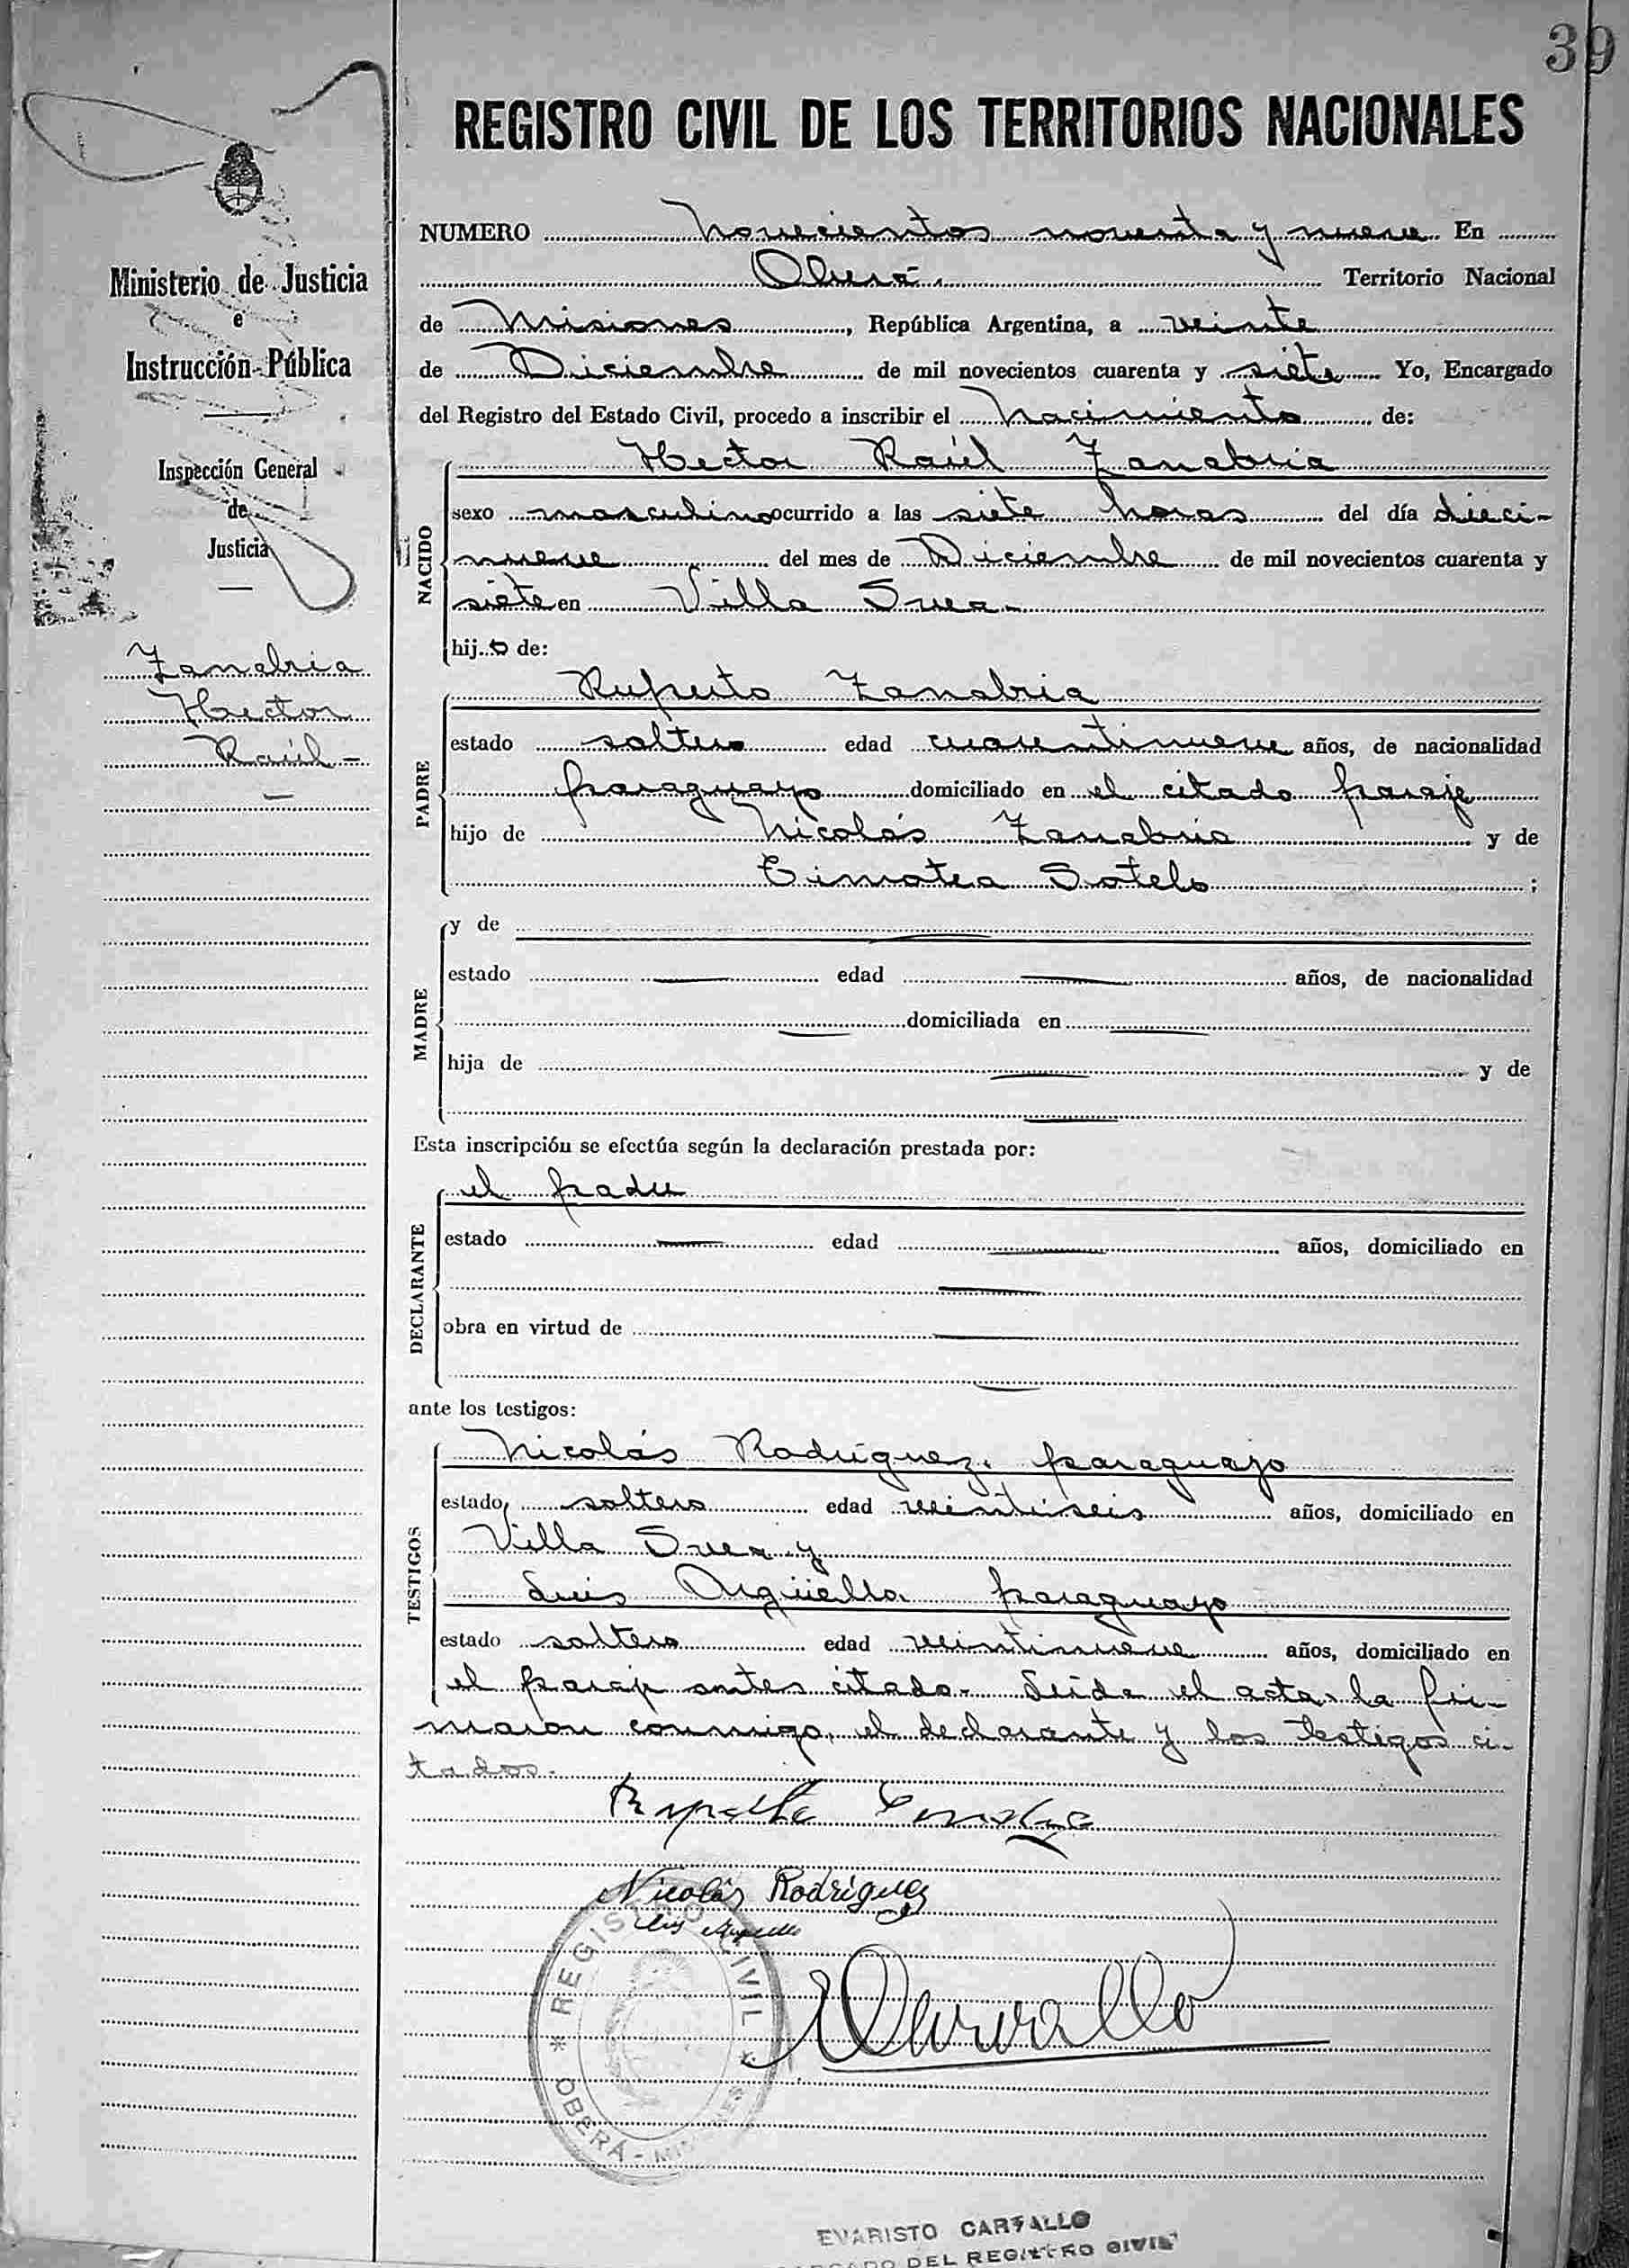 39
REGISTRO CIVIL DE LOS TERRITORIOS NACIONALES
Ministerio de Justicia
e
Instrucción Pública
Inspección General
de
Justicia
Zanabria
Hector
Raúl -
NUMERO Novecientos noventa y nueve En
Oberá. Territorio Nacional
de Misiones, República Argentina, a veinte
de Diciembre de mil novecientos cuarenta y siete Yo, Encargado
del Registro del Estado Civil, procedo a inscribir el Nacimiento de:
NACIDO
Hector Raúl Zanabria
sexo masculino ocurrido a las siete horas del día dieci-
nueve del mes de Diciembre de mil novecientos cuarenta y
siete en Villa Svea -
hijo de:
PADRE
Ruperto Zanabria
estado soltero edad cuarentinueve años, de nacionalidad
paraguayo domiciliado en el citado paraje
hijo de Nicolás Zanabria y de
Timotea Sotelo ;
MADRE
y de
estado — edad — años, de nacionalidad
— domiciliada en —
hija de — y de
—
Esta inscripción se efectúa según la declaración prestada por:
DECLARANTE
el padre
estado — edad — años, domiciliado en
—
obra en virtud de —
—
ante los testigos:
TESTIGOS
Nicolás Rodríguez, paraguayo
estado, soltero edad veintiseis años, domiciliado en
Villa Svea y
Luis Argüello, paraguayo
estado soltero edad veintinueve años, domiciliado en
el paraje antes citado - Leida el acta, la fir-
maron conmigo, el declarante y los testigos ci-
tados.
Nicolás Rodríguez
Luis Arguello
ECarvallo
* REGISTRO CIVIL *
OBERÁ - MISIONES
EVARISTO CARVALLO
DEL REGISTRO CIVIL